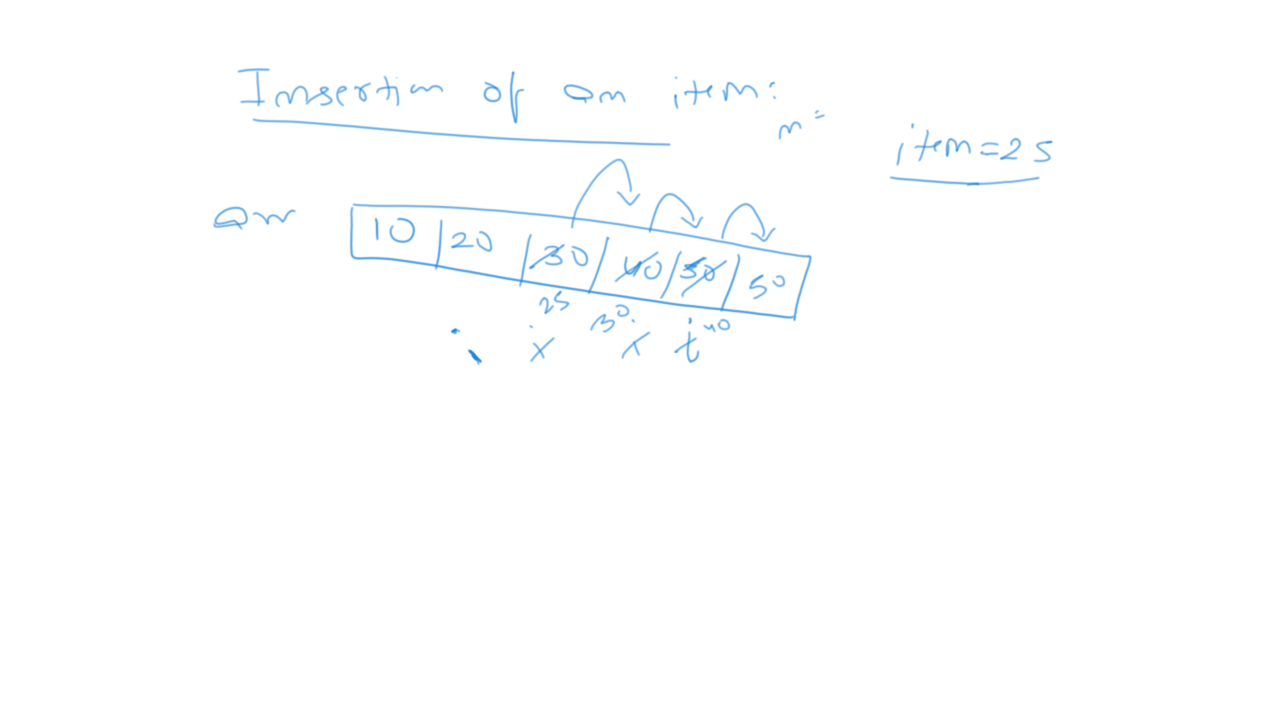 Insertion of an item:
n =
item=25
arr
10 20 30 40 50 50
25 30. 40
i i